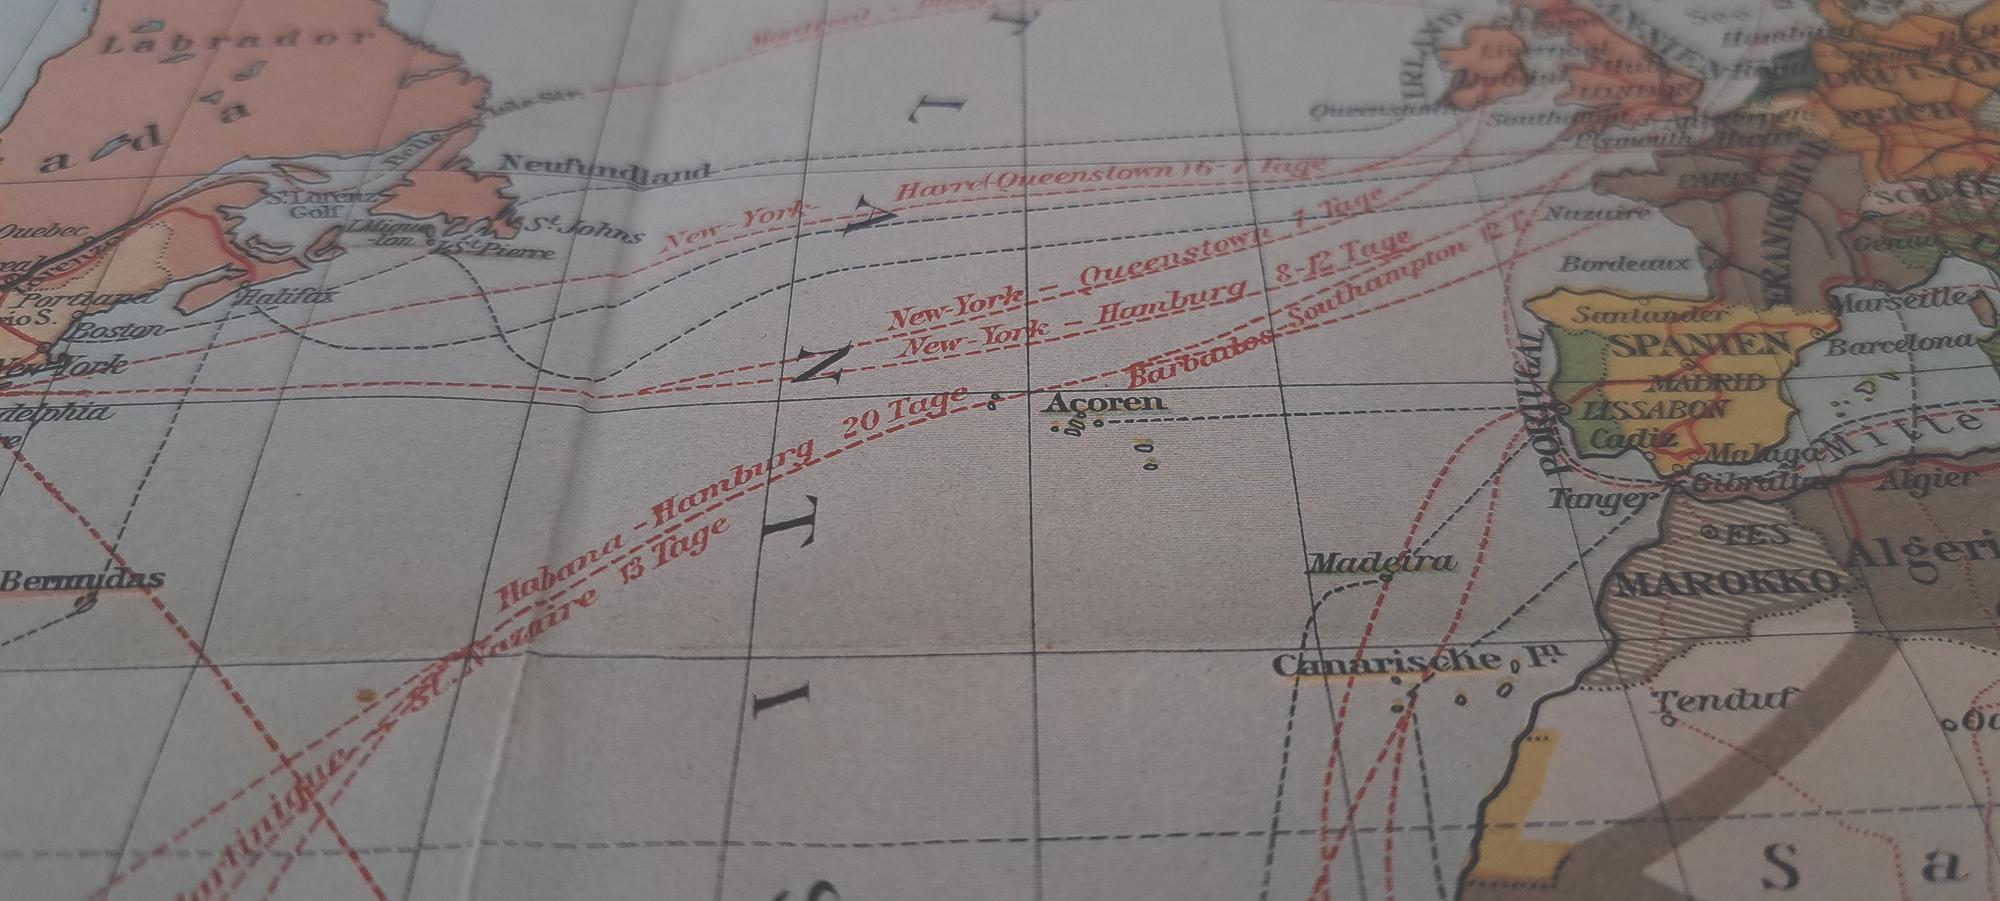 Montreal
Labrador
ada
Belle
Neufundland
St. Lorenz
Golf
I. Mique
-lon
I. St. Pierre
St. Johns
Quebec
Portland
Halifax
Boston
New-York
Bermudas
IRLAND
Queenstown
Dublin
Liverpool
LONDON
Southampt
Plymouth
Havre
Antwerpen
Hamburg
DEUTSCH
REICH
PARIS
FRANKREICH
Nazaire
Bordeaux
Genua
Marseille
New-York - Havre (Queenstown) 6-7 Tage
New-York - Queenstown 7 Tage
New-York - Hamburg 8-12 Tage
Barbados-Southampton 12 T.
Habana - Hamburg 20 Tage
St. Nazaire 13 Tage
Martinique
Açoren
Santander
SPANIEN
Barcelona
MADRID
PORTUGAL
LISSABON
Cadiz
Malaga
Gibraltar
Mitte
Tanger
Algier
FES
Algeri
MAROKKO
Madeira
Canarische In
Tenduf
S a
N T I S